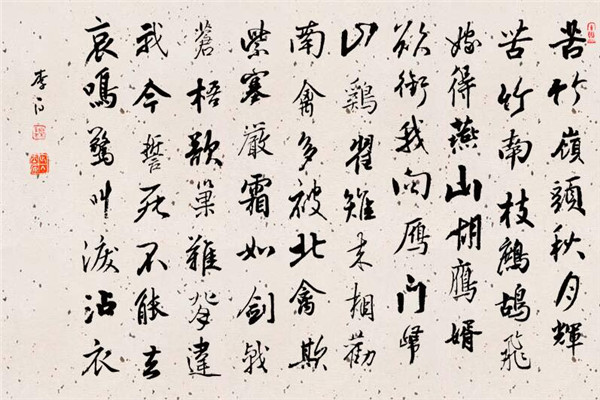 苦竹嶺頭秋月輝
苦竹南枝鷓鴣飛
嫁得燕山胡鷹婿
欲銜我向雁門歸
山鷄翟雉来相勸
南禽多被北禽欺
紫塞嚴霜如劍戟
蒼梧歌巢難背違
我今誓死不能去
哀鳴驚叫淚沾衣
李白